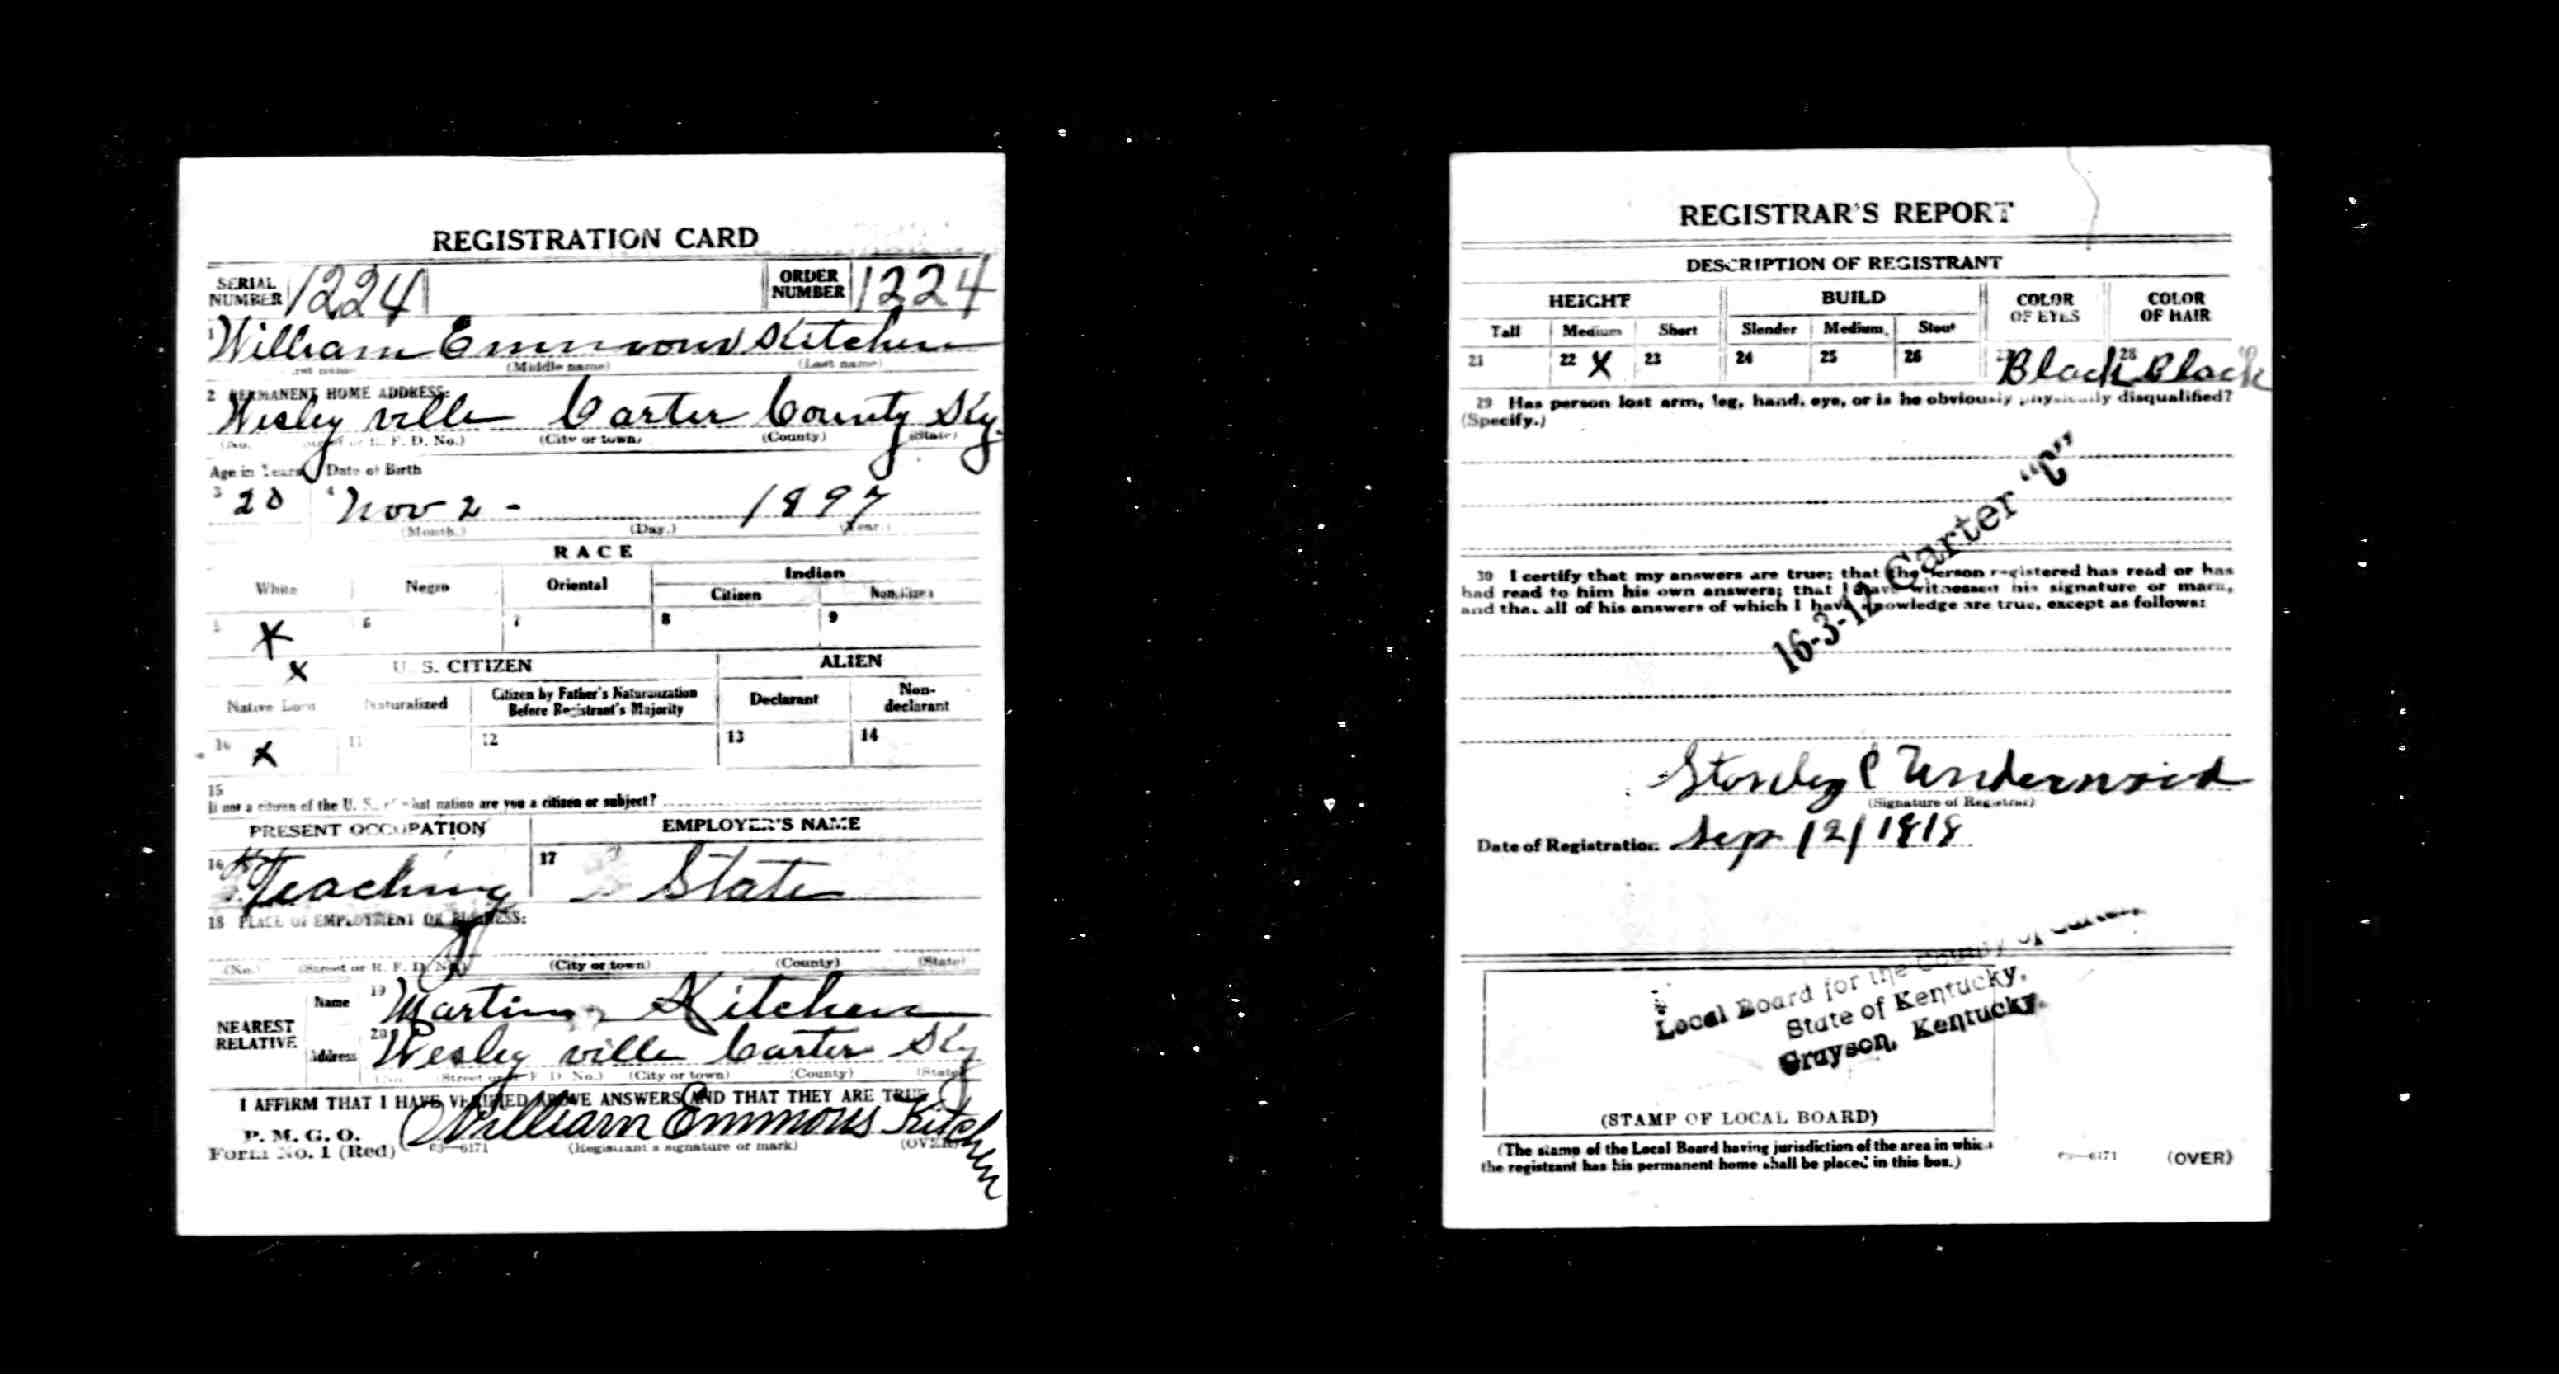 REGISTRATION CARD
SERIAL NUMBER 1224 ORDER NUMBER 1224
1 William Emmons Kitchen
(Middle name) (Last name)
2 PERMANENT HOME ADDRESS:
Wesley ville Carter County Ky.
(No. Street or R. F. D. No.) (City or town) (County) (State)
Age in Years Date of Birth
3 20 4 Nov 2 - 1897
(Month.) (Day.) (Year.)
RACE
White Negro Oriental Indian
Citizen Noncitizen
5 X 6 7 8 9
X U. S. CITIZEN ALIEN
Native Born Naturalized Citizen by Father's Naturalization Before Registrant's Majority Declarant Non-declarant
10 X 11 12 13 14
15
If not a citizen of the U. S., of what nation are you a citizen or subject?
PRESENT OCCUPATION EMPLOYER'S NAME
16 Teaching 17 State
18 PLACE OF EMPLOYMENT OR BUSINESS:
(No.) (Street or R. F. D. No.) (City or town) (County) (State)
NEAREST RELATIVE Name 19 Martin Kitchen
Address 20 Wesley ville Carter Ky
(No. Street or R. F. D. No.) (City or town) (County) (State)
I AFFIRM THAT I HAVE VERIFIED ABOVE ANSWERS AND THAT THEY ARE TRUE
P. M. G. O.
Form No. 1 (Red) 03—6171 William Emmons Kitchen
(Registrant's signature or mark) (OVER)
REGISTRAR'S REPORT
DESCRIPTION OF REGISTRANT
HEIGHT BUILD COLOR OF EYES COLOR OF HAIR
Tall Medium Short Slender Medium Stout
21 22 X 23 24 25 26 Black 28 Black
29 Has person lost arm, leg, hand, eye, or is he obviously physically disqualified?
(Specify.)
16-3-12 Carter "C"
30 I certify that my answers are true; that the person registered has read or has
had read to him his own answers; that I have witnessed his signature or mark,
and that all of his answers of which I have knowledge are true, except as follows:
Stonley C Underwood
(Signature of Registrar)
Date of Registration Sep 12/1918
Local Board for the County of Carter,
State of Kentucky,
Grayson, Kentucky.
(STAMP OF LOCAL BOARD)
(The stamp of the Local Board having jurisdiction of the area in which
the registrant has his permanent home shall be placed in this box.)
03—6171 (OVER)